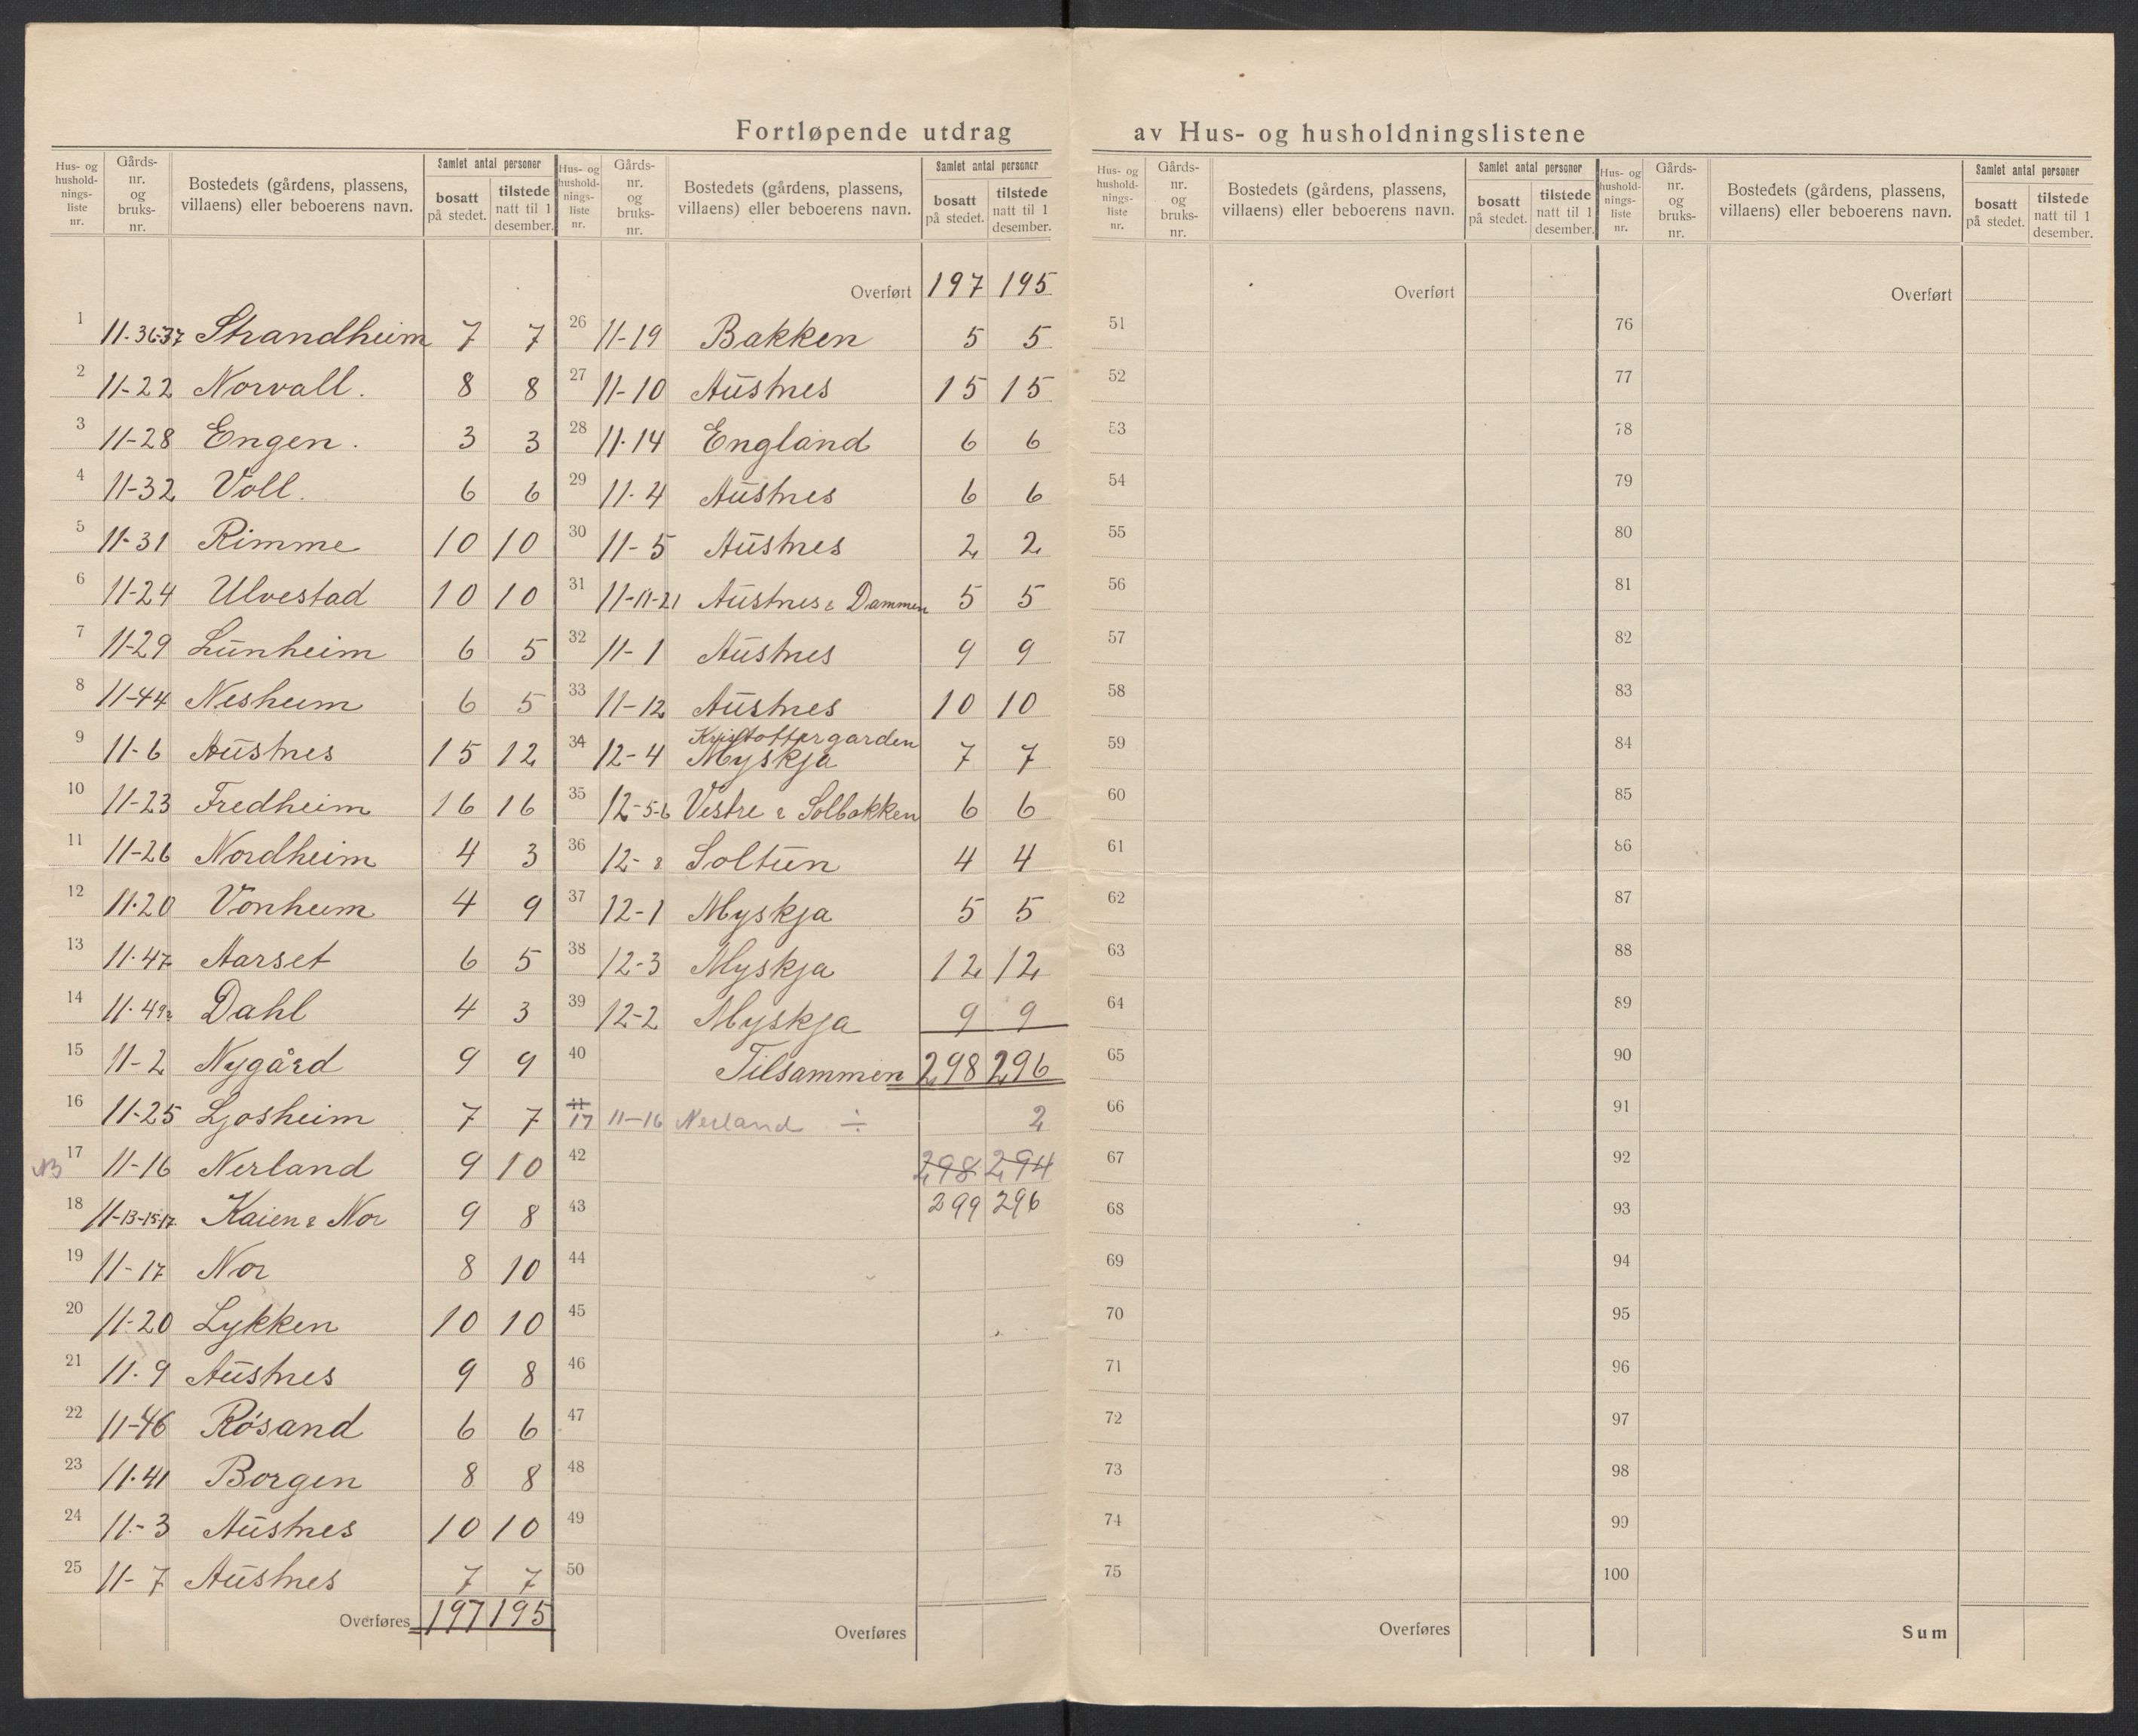 Fortløpende utdrag av Hus- og husholdningslistene
Hus- og hushold-nings-liste nr. Gårds-nr. og bruks-nr. Bostedets (gårdens, plassens, villaens) eller beboerens navn. Samlet antal personer bosatt på stedet. tilstede natt til 1 desember.
1 11-36-37 Strandheim 7 7
2 11-22 Norvall. 8 8
3 11-28 Engen. 3 3
4 11-32 Voll. 6 6
5 11-31 Rimme 10 10
6 11-24 Ulvestad 10 10
7 11-29 Lunheim 6 5
8 11-44 Nesheim 6 5
9 11-6 Austnes 15 12
10 11-23 Fredheim 16 16
11 11-26 Nordheim 4 3
12 11-20 Vonheim 4 9
13 11-47 Aarset 6 5
14 11-49 Dahl 4 3
15 11-2 Nygård 9 9
16 11-25 Ljosheim 7 7
NB 17 11-16 Nerland 9 10
18 11-13-15-17 Kaien & Nor 9 8
19 11-17 Nor 8 10
20 11-20 Lykken 10 10
21 11-9 Austnes 9 8
22 11-46 Røsand 6 6
23 11-41 Borgen 8 8
24 11-3 Austnes 10 10
25 11-7 Austnes 7 7
Overføres 197 195
Hus- og hushold-nings-liste nr. Gårds-nr. og bruks-nr. Bostedets (gårdens, plassens, villaens) eller beboerens navn. Samlet antal personer bosatt på stedet. tilstede natt til 1 desember.
Overført 197 195
26 11-19 Bakken 5 5
27 11-10 Austnes 15 15
28 11-14 England 6 6
29 11-4 Austnes 6 6
30 11-5 Austnes 2 2
31 11-11-21 Austnes & Dammen 5 5
32 11-1 Austnes 9 9
33 11-12 Austnes 10 10
34 12-4 Kristoffergarden Myskja 7 7
35 12-5-6 Vestre & Solbakken 6 6
36 12-8 Soltun 4 4
37 12-1 Myskja 5 5
38 12-3 Myskja 12 12
39 12-2 Myskja 9 9
40 Tilsammen 298 296
41 17 11-16 Nerland ÷ 2
42 298 294
43 299 296
44
45
46
47
48
49
50
Overføres
Hus- og hushold-nings-liste nr. Gårds-nr. og bruks-nr. Bostedets (gårdens, plassens, villaens) eller beboerens navn. Samlet antal personer bosatt på stedet. tilstede natt til 1 desember.
Overført
51
52
53
54
55
56
57
58
59
60
61
62
63
64
65
66
67
68
69
70
71
72
73
74
75
Overføres
Hus- og hushold-nings-liste nr. Gårds-nr. og bruks-nr. Bostedets (gårdens, plassens, villaens) eller beboerens navn. Samlet antal personer bosatt på stedet. tilstede natt til 1 desember.
Overført
76
77
78
79
80
81
82
83
84
85
86
87
88
89
90
91
92
93
94
95
96
97
98
99
100
Sum